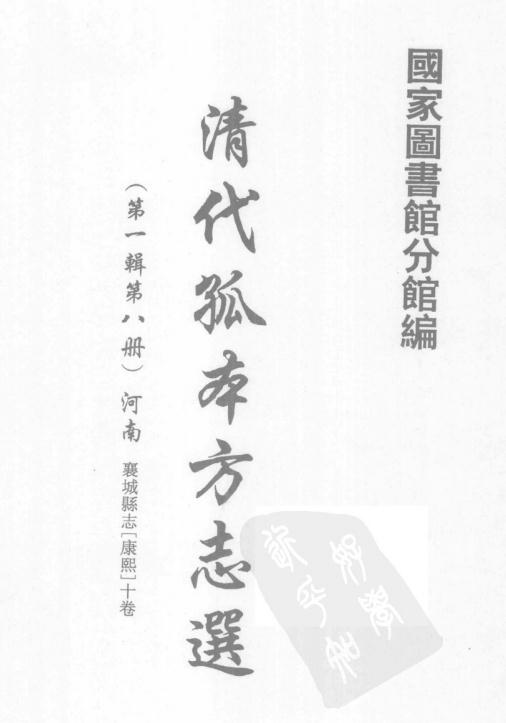 國家圖書館分館編
清代孤本方志選
（第一輯第八册）河南 襄城縣志[康熙]十卷